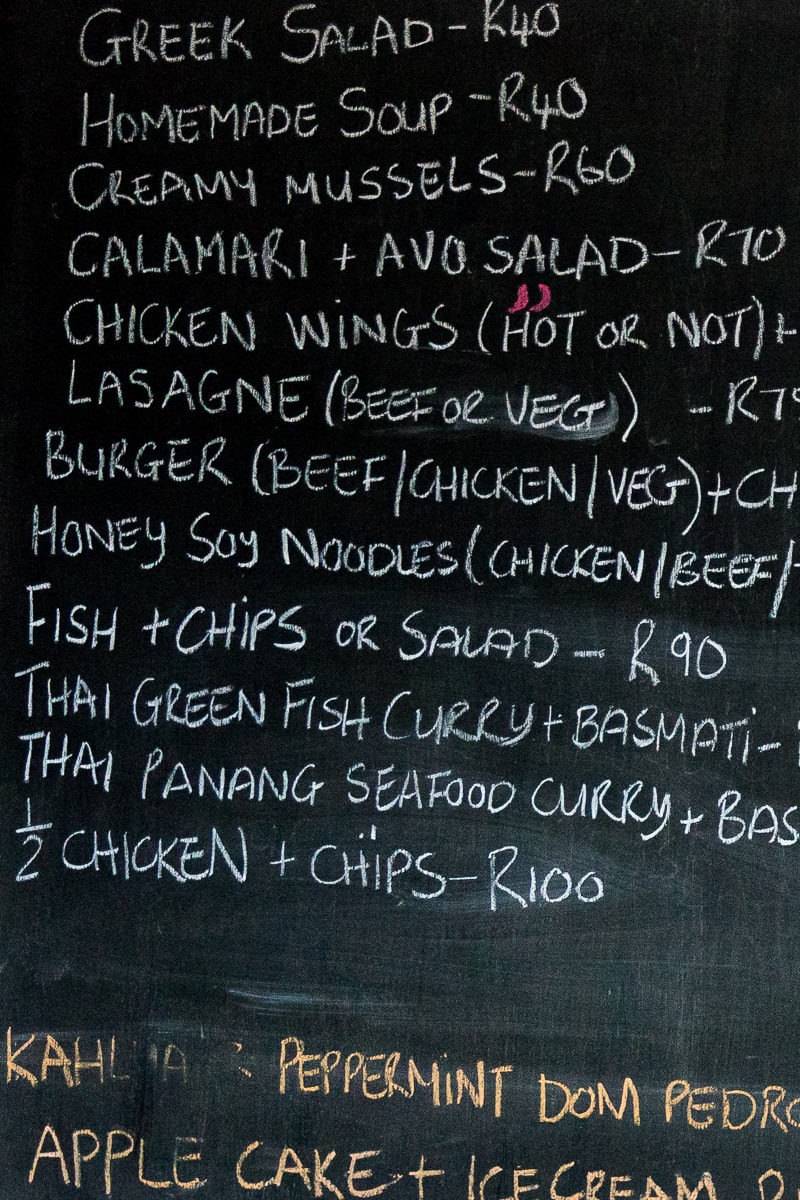 GREEK SALAD - R40
HOMEMADE SOUP - R40
CREAMY MUSSELS - R60
CALAMARI + AVO SALAD - R70
CHICKEN WINGS (HOT OR NOT) +
LASAGNE (BEEF OR VEG) - R7
BURGER (BEEF/CHICKEN/VEG) + CH
HONEY SOY NOODLES (CHICKEN/BEEF/
FISH + CHIPS OR SALAD - R90
THAI GREEN FISH CURRY + BASMATI -
THAI PANANG SEAFOOD CURRY + BAS
½ CHICKEN + CHIPS - R100
PEPPERMINT DOM PEDRO
APPLE CAKE + ICE CREAM